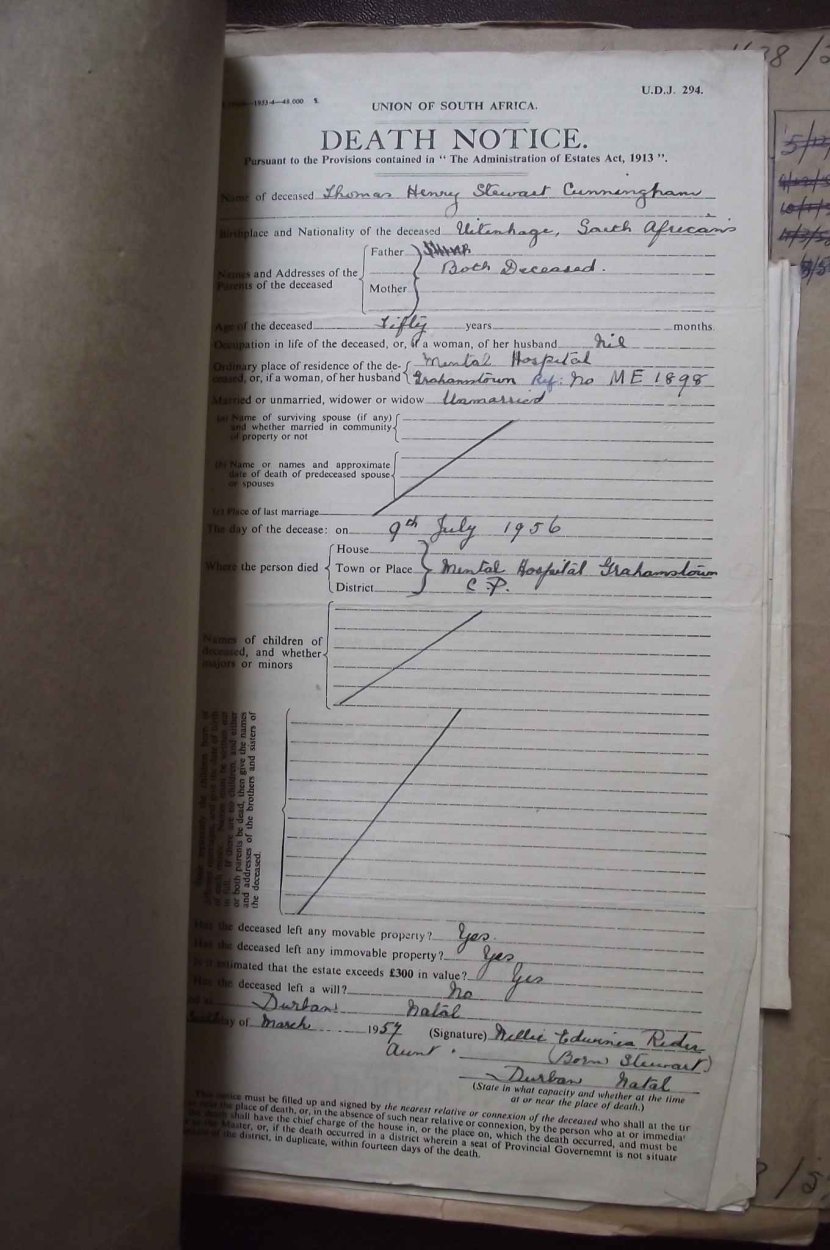 U.D.J. 294.
1953-4—48,000 S.
UNION OF SOUTH AFRICA.
DEATH NOTICE.
Pursuant to the Provisions contained in “ The Administration of Estates Act, 1913 ”.
Name of deceased Thomas Henry Stewart Cunningham
Birthplace and Nationality of the deceased Uitenhage, South African
Names and Addresses of the Parents of the deceased
Father
Both Deceased.
Mother
Age of the deceased Fifty years months.
Occupation in life of the deceased, or, if a woman, of her husband Nil
Ordinary place of residence of the de- Mental Hospital
ceased, or, if a woman, of her husband Grahamstown Ref: No ME 1898
Married or unmarried, widower or widow Unmarried
(a) Name of surviving spouse (if any)
and whether married in community
of property or not
(b) Name or names and approximate
date of death of predeceased spouse
or spouses
(c) Place of last marriage
The day of the decease: on 9th July 1956
House
Where the person died Town or Place Mental Hospital Grahamstown
District C.P.
Names of children of
deceased, and whether
majors or minors
or both parents be dead, then give the names
and addresses of the brothers and sisters of
the deceased.
Has the deceased left any movable property? Yes.
Has the deceased left any immovable property? Yes
Is it estimated that the estate exceeds £300 in value? Yes
Has the deceased left a will? No
Durban Natal
day of March 1957 (Signature) Nellie Edwinea Rider
Aunt. (Born Stewart)
Durban Natal
(State in what capacity and whether at the time
at or near the place of death.)
This notice must be filled up and signed by the nearest relative or connexion of the deceased who shall at the tir
the place of death, or, in the absence of such near relative or connexion, by the person who at or immediat
the death shall have the chief charge of the house in, or the place on, which the death occurred, and must be
to the Master, or, if the death occurred in a district wherein a seat of Provincial Governemnt is not situate
of the district, in duplicate, within fourteen days of the death.